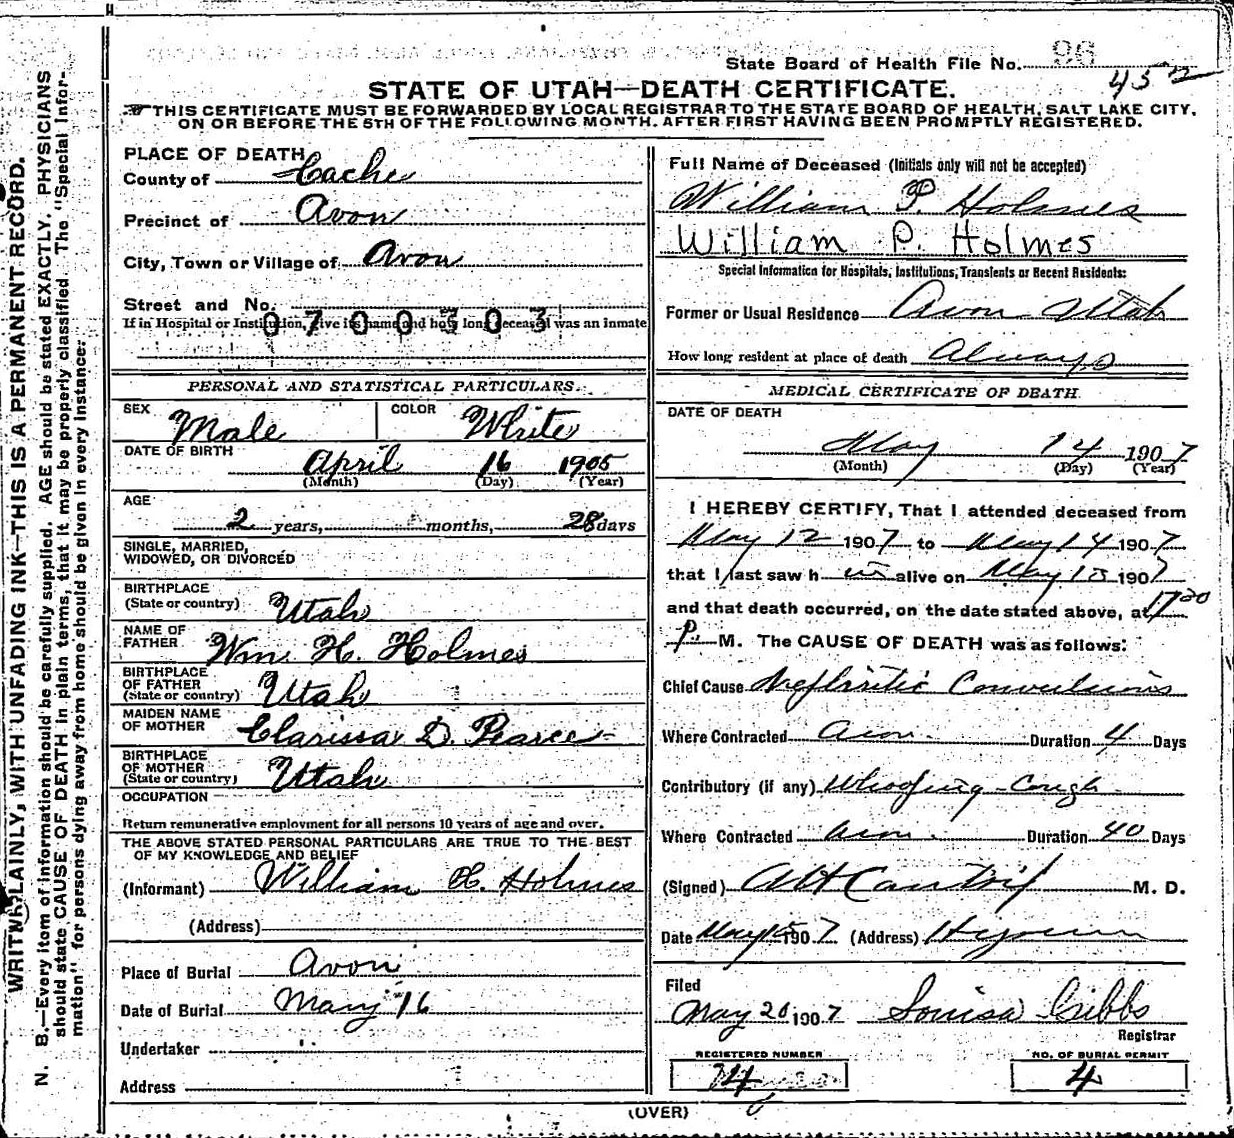 State Board of Health File No. 96
452
STATE OF UTAH—DEATH CERTIFICATE.
THIS CERTIFICATE MUST BE FORWARDED BY LOCAL REGISTRAR TO THE STATE BOARD OF HEALTH, SALT LAKE CITY,
ON OR BEFORE THE 5TH OF THE FOLLOWING MONTH. AFTER FIRST HAVING BEEN PROMPTLY REGISTERED.
WRITE PLAINLY, WITH UNFADING INK—THIS IS A PERMANENT RECORD.
N. B.—Every item of information should be carefully supplied. AGE should be stated EXACTLY. PHYSICIANS
should state CAUSE OF DEATH in plain terms, that it may be properly classified. The "Special Infor-
mation" for persons dying away from home should be given in every instance.
PLACE OF DEATH
County of Cache
Precinct of Avon
City, Town or Village of Avon
Street and No.
0700303
If in Hospital or Institution, give its name and how long deceased was an inmate
PERSONAL AND STATISTICAL PARTICULARS.
SEX Male COLOR White
DATE OF BIRTH
April 16 1905
(Month) (Day) (Year)
AGE
2 years, months, 28 days
SINGLE, MARRIED,
WIDOWED, OR DIVORCED
BIRTHPLACE
(State or country) Utah
NAME OF
FATHER Wm. H. Holmes
BIRTHPLACE
OF FATHER
(State or country) Utah
MAIDEN NAME
OF MOTHER Clarissa D. Pearce
BIRTHPLACE
OF MOTHER
(State or country) Utah
OCCUPATION
Return remunerative employment for all persons 10 years of age and over.
THE ABOVE STATED PERSONAL PARTICULARS ARE TRUE TO THE BEST
OF MY KNOWLEDGE AND BELIEF
(Informant) William H. Holmes
(Address)
Place of Burial Avon
Date of Burial May 16
Undertaker
Address
Full Name of Deceased (Initials only will not be accepted)
William P. Holmes
William P. Holmes
Special Information for Hospitals, Institutions, Transients or Recent Residents:
Former or Usual Residence Avon Utah
How long resident at place of death Always
MEDICAL CERTIFICATE OF DEATH.
DATE OF DEATH
May 14 1907
(Month) (Day) (Year)
I HEREBY CERTIFY, That I attended deceased from
May 12 1907 to May 14 1907
that I last saw h im alive on May 13 1907
and that death occurred, on the date stated above, at
P. M. The CAUSE OF DEATH was as follows:
Chief Cause Nephritic Convulsions
Where Contracted Avon Duration 4 Days
Contributory (if any) Whooping Cough
Where Contracted Avon Duration 40 Days
(Signed) M. D.
Date May 15 1907 (Address) Hyrum
Filed
May 20 1907 Louisa Gibbs
Registrar
REGISTERED NUMBER
4
NO. OF BURIAL PERMIT
4
(OVER)